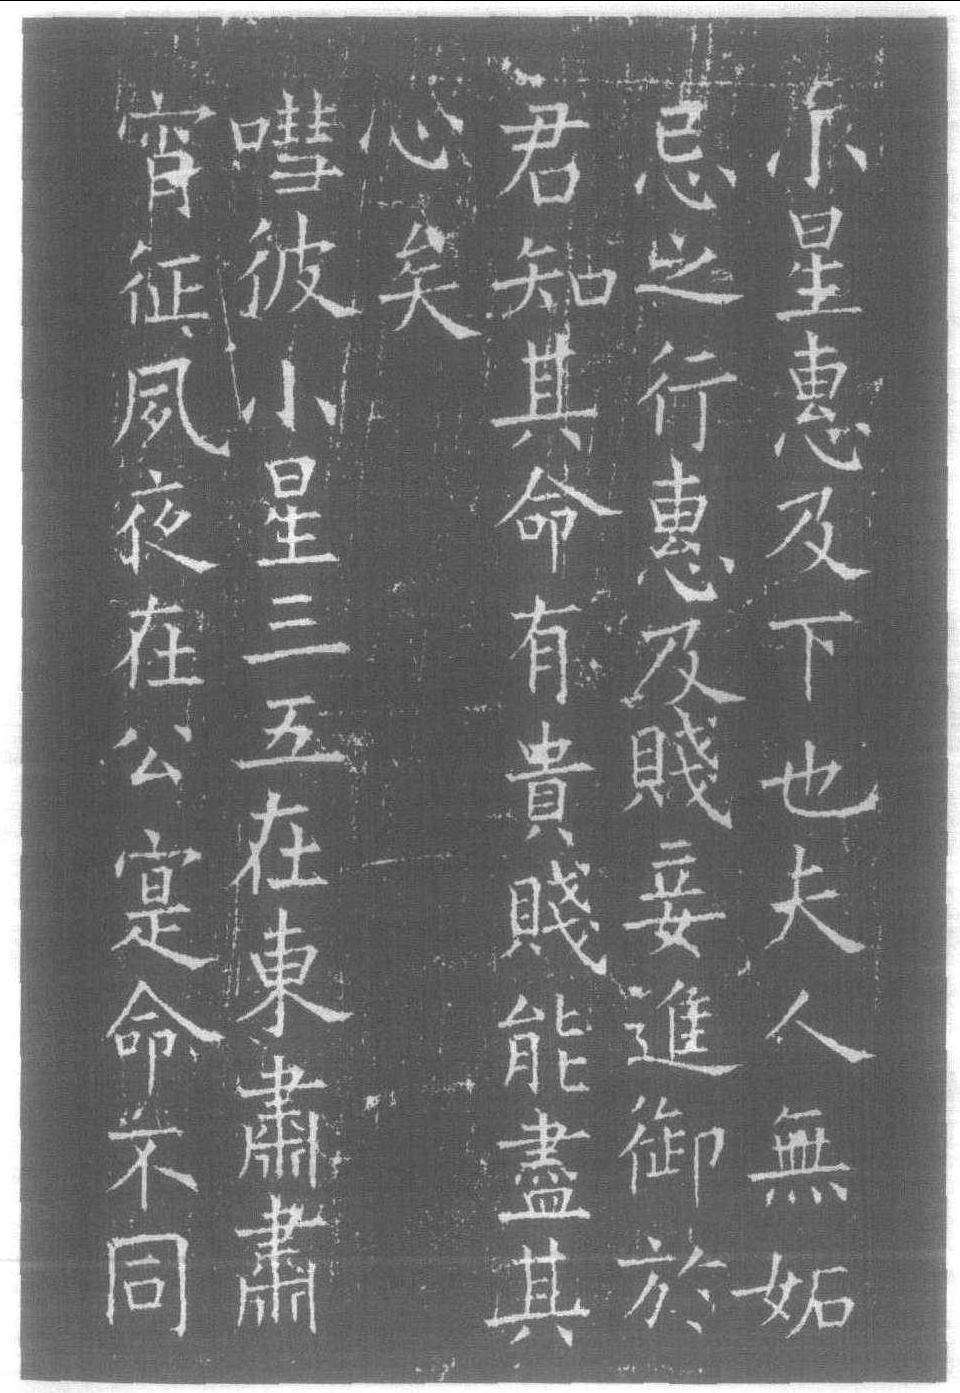 小星惠及下也夫人無妬
忌之行惠及賤妾進御於
君知其命有貴賤能盡其
心矣
嘒彼小星三五在東肅肅
宵征夙夜在公寔命不同